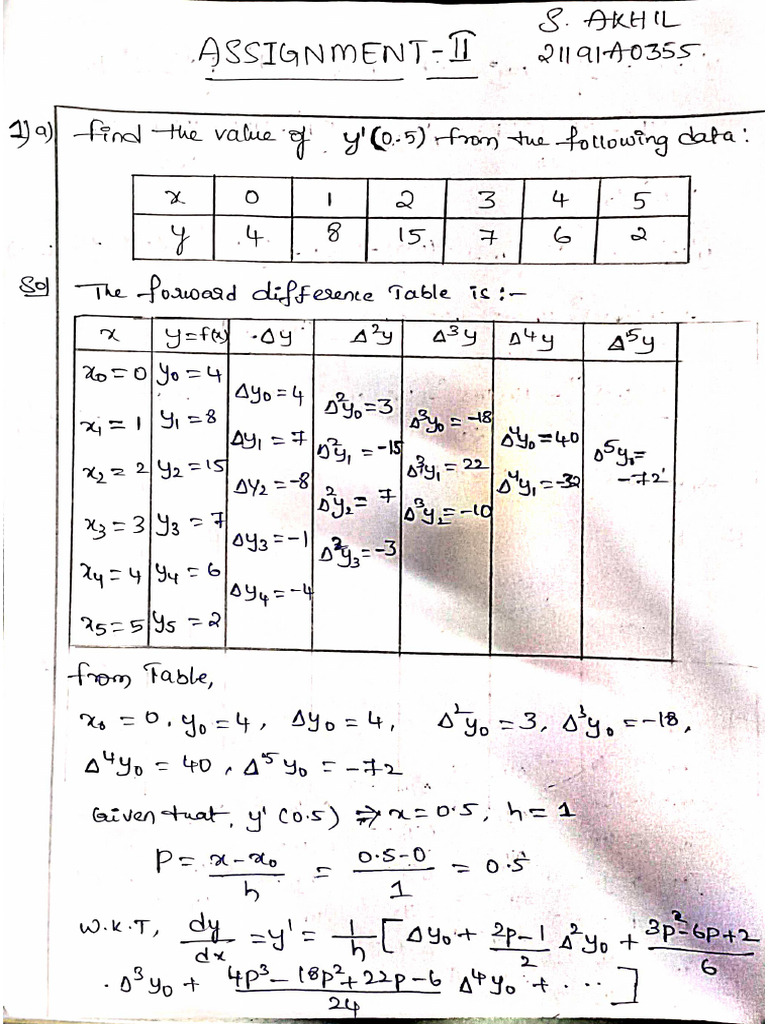 S. AKHIL
ASSIGNMENT-II
21191A0355.
1)a) find the value of y'(0.5) from the following data:
x 0 1 2 3 4 5
y 4 8 15 7 6 2
Sol The forward difference Table is :-
x y=f(x) Δy Δ²y Δ³y Δ⁴y Δ⁵y
x₀=0 y₀=4
Δy₀=4 Δ²y₀=3
x₁=1 y₁=8 Δ³y₀=-18
Δy₁=7 Δ²y₁=-15 Δ⁴y₀=40
x₂=2 y₂=15 Δ³y₁=22 Δ⁵y₀=-72
Δy₂=-8 Δ²y₂=7 Δ⁴y₁=-32
x₃=3 y₃=7 Δ³y₂=-10
Δy₃=-1 Δ²y₃=-3
x₄=4 y₄=6
Δy₄=-4
x₅=5 y₅=2
from Table,
x₀=0, y₀=4, Δy₀=4, Δ²y₀=3, Δ³y₀=-18,
Δ⁴y₀=40, Δ⁵y₀=-72
Given that, y'(0.5) ⇒ x=0.5, h=1
P = (x-x₀)/h = (0.5-0)/1 = 0.5
W.K.T, dy/dx = y' = 1/h [Δy₀ + (2p-1)/2 Δ²y₀ + (3p²-6p+2)/6
. Δ³y₀ + (4p³-18p²+22p-6)/24 Δ⁴y₀ + ...]